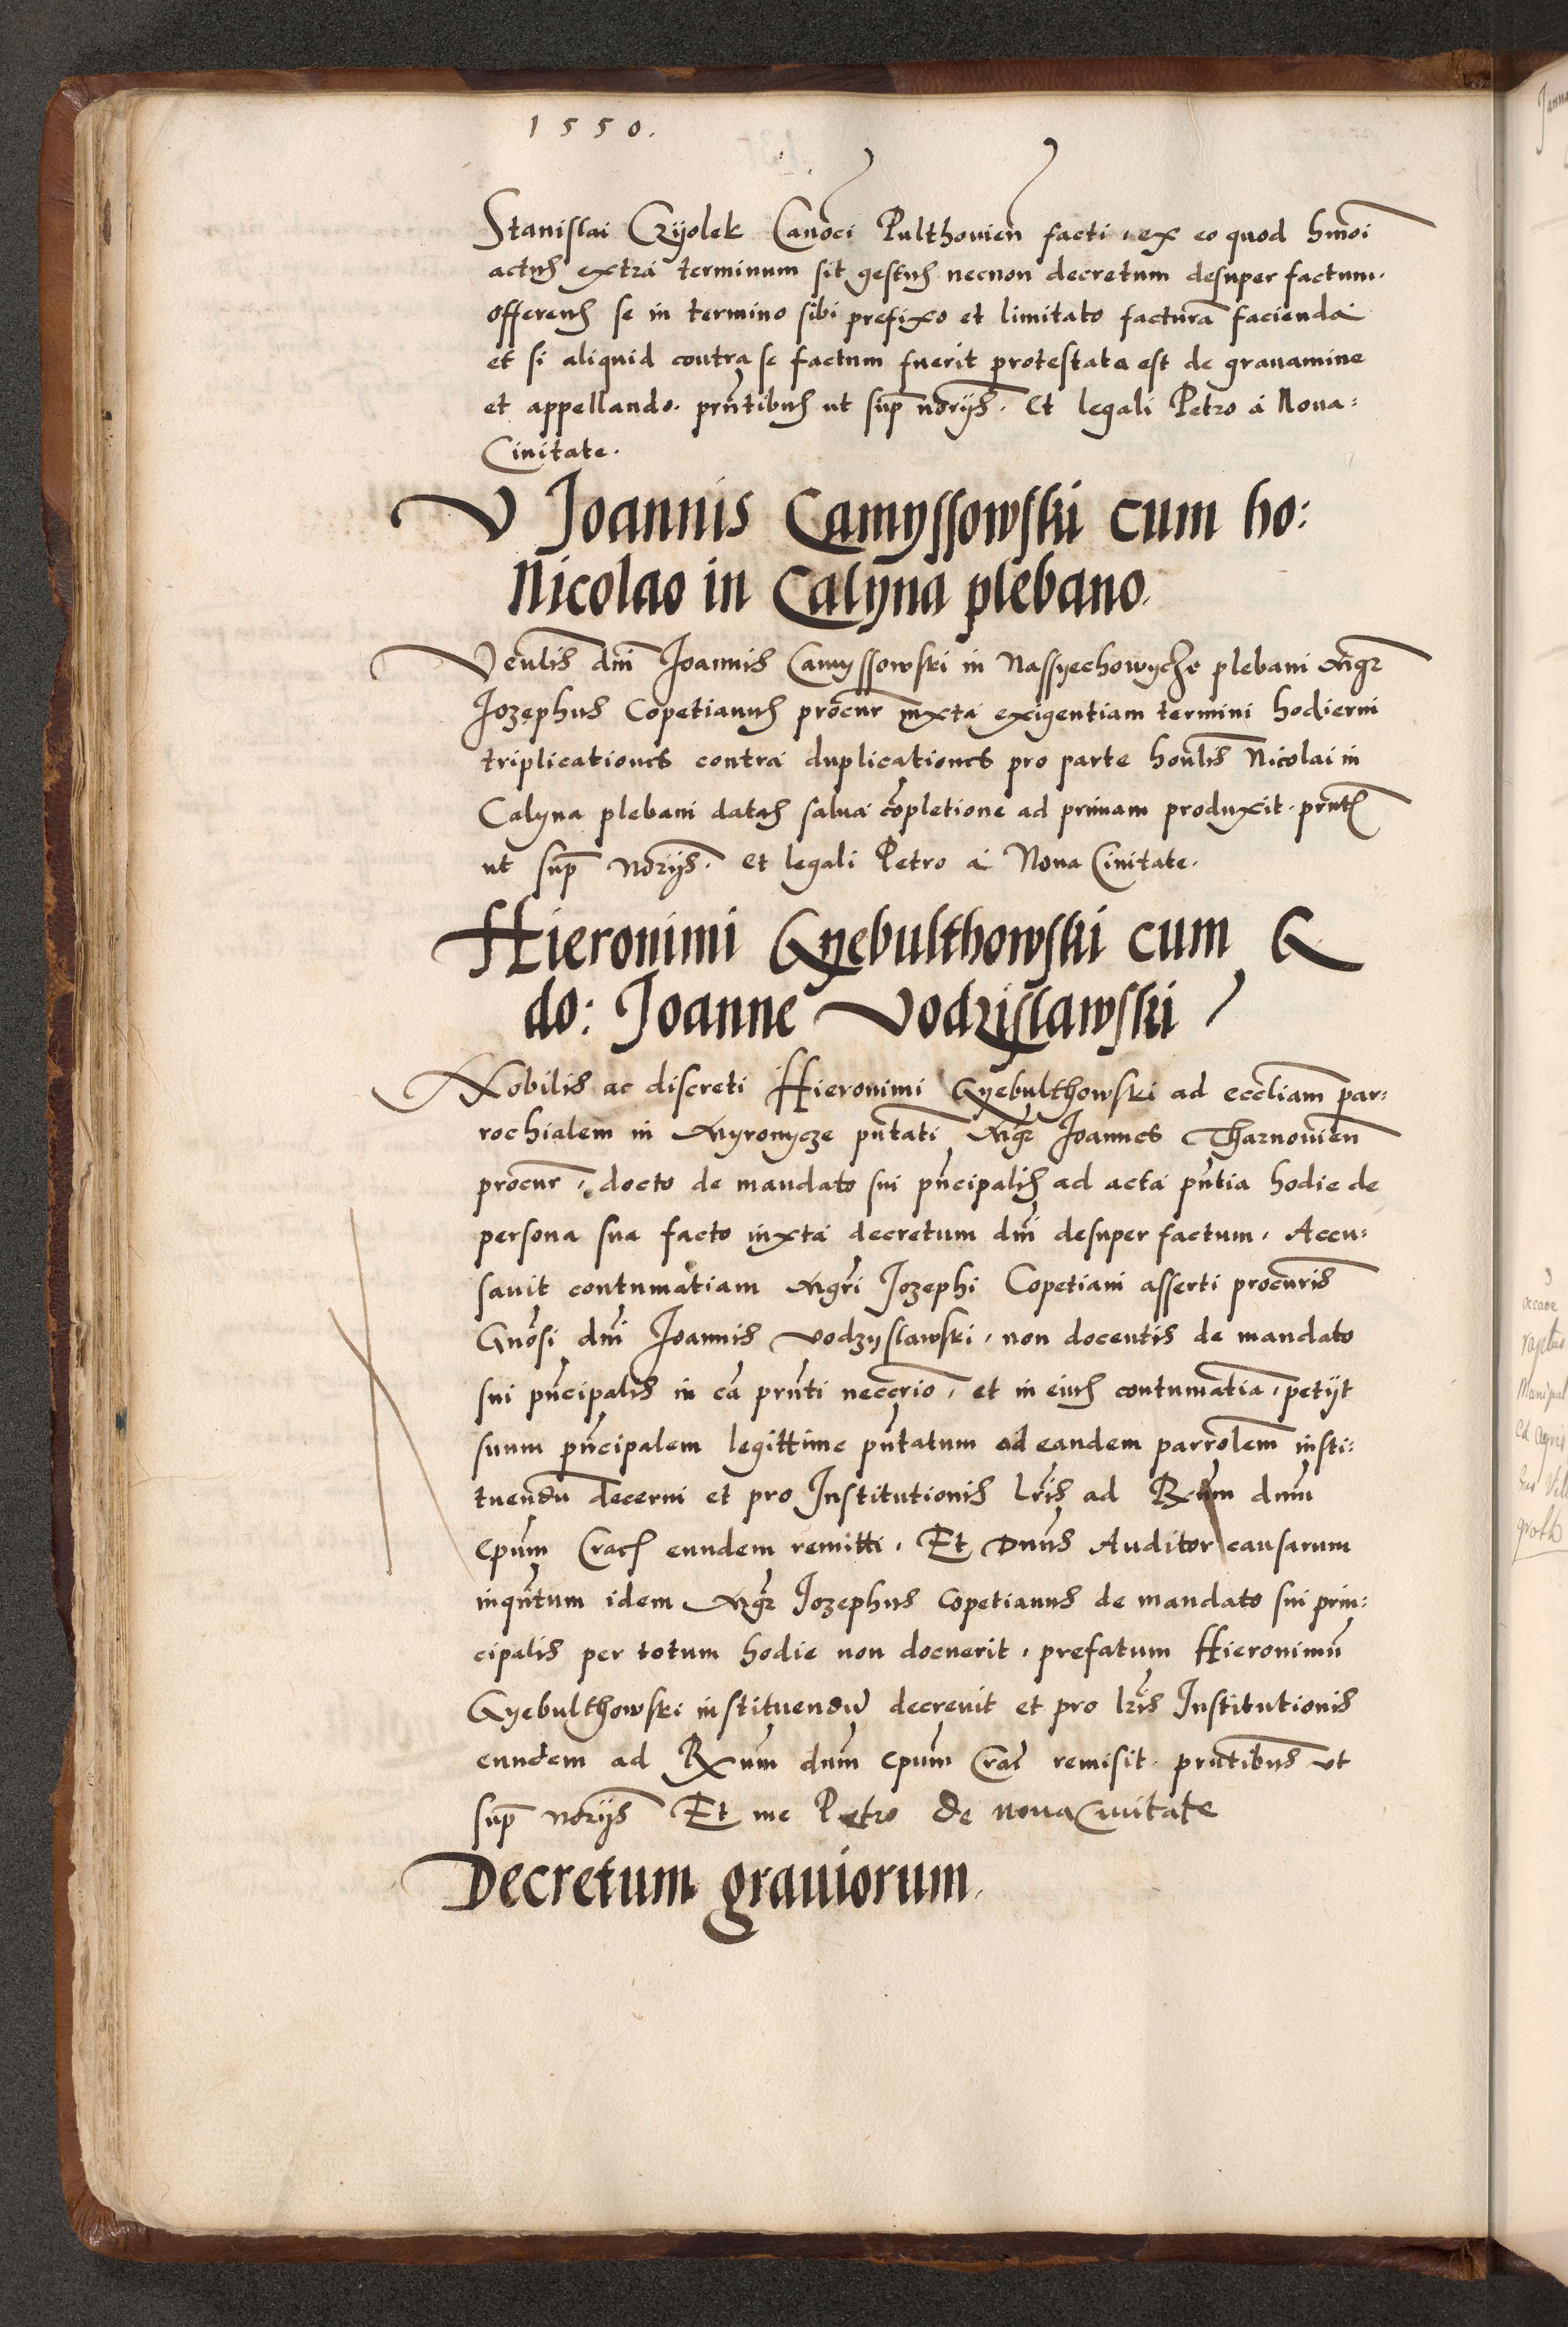 1550.
Stanislai Czyolek Canoci Pulthovien facti, ex eo quod hmoi
actus extra terminum sit gestus necnon decretum desuper factum.
offerens se in termino sibi prefixo et limitato facturā facienda
et si aliquid contra se factum fuerit protestata est de gravamine
et appellando. prntibus ut sup norijs. Et legali Petro a Nova=
Civitate.
V Joannis Camyssowski cum ho:
Nicolao in Calyna plebano.
Venlis dni Joannis Camyssowski in Nassyechowycze plebani Mgr
Jozephus Copetianus procur iuxta exigentiam termini hodierni
triplicationes contra duplicationes pro parte honlis Nicolai in
Calyna plebani datas salva cōpletione ad primam produxit. prntibus
ut sup norijs. et legali Petro a Nova Civitate.
Hieronimi Gyebulthowski cum G
do: Joanne Vodzislawski
Nobilis ac discreti Hieronimi Gyebulthowski ad eccliam par=
rochialem in Myronycze pntati Mgr Joannes Tharnovien
procur, docto de mandato sui pncipalis ad acta pntia hodie de
persona sua facto iuxta decretum dni desuper factum. Accu=
savit contumatiam Mgri Jozephi Copetiani asserti procuris
Gnosi dni Joannis Vodzyslawski, non docentis de mandato
sui pncipalis in cā prnti neccrio, et in eius contumatia, petijt
suum pncipalem legittime pntatum ad eandem parrolem insti=
tuendū decerni et pro Institutionis lris ad Rxum dnum
epum Crac eundem remitti. Et Dnus Auditor causarum
inqntum idem Mgr Jozephus Copetianus de mandato sui prin=
cipalis per totum hodie non docuerit, prefatum Hieronimū
Gyebulthowski instituendū decrevit et pro lris Institutionis
eundem ad Rxum dnum epum Crac remisit. prntibus ut
sup norijs Et me Petro de nova Civitate
Decretum graviorum.